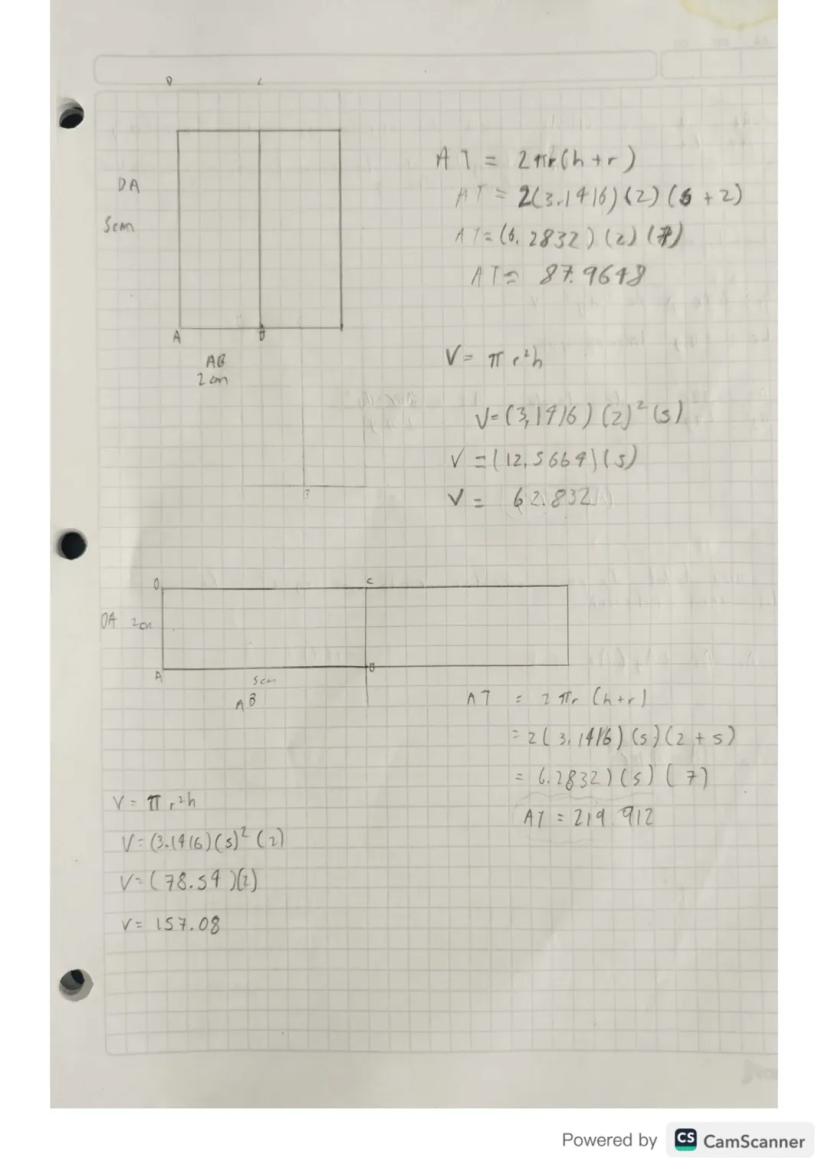 D C
DA
5cm
A B
AB
2 cm
AT = 2πr(h+r)
AT = 2(3.1416)(2)(5+2)
AT = (6.2832)(2)(7)
AT = 87.9648
V = πr²h
V=(3,1416)(2)²(5)
V =(12,5664)(5)
V = 62.832
D C
DA 2cm
A B
5cm
AB
AT = 2πr (h+r)
=2(3.1416)(5)(2+5)
= 6.2832)(5)(7)
AT = 219.912
V = πr²h
V=(3.1416)(5)²(2)
V=(78.54)(2)
V= 157.08
Powered by CS CamScanner